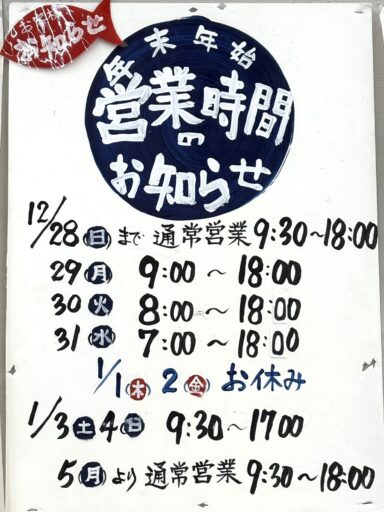 お知らせ
年末年始
営業時間
の
お知らせ
12/28(日)まで 通常営業 9:30～18:00
29(月) 9:00～18:00
30(火) 8:00～18:00
31(水) 7:00～18:00
1/1(木) 2(金) お休み
1/3(土)4(日) 9:30～17:00
5(月)より通常営業 9:30～18:00